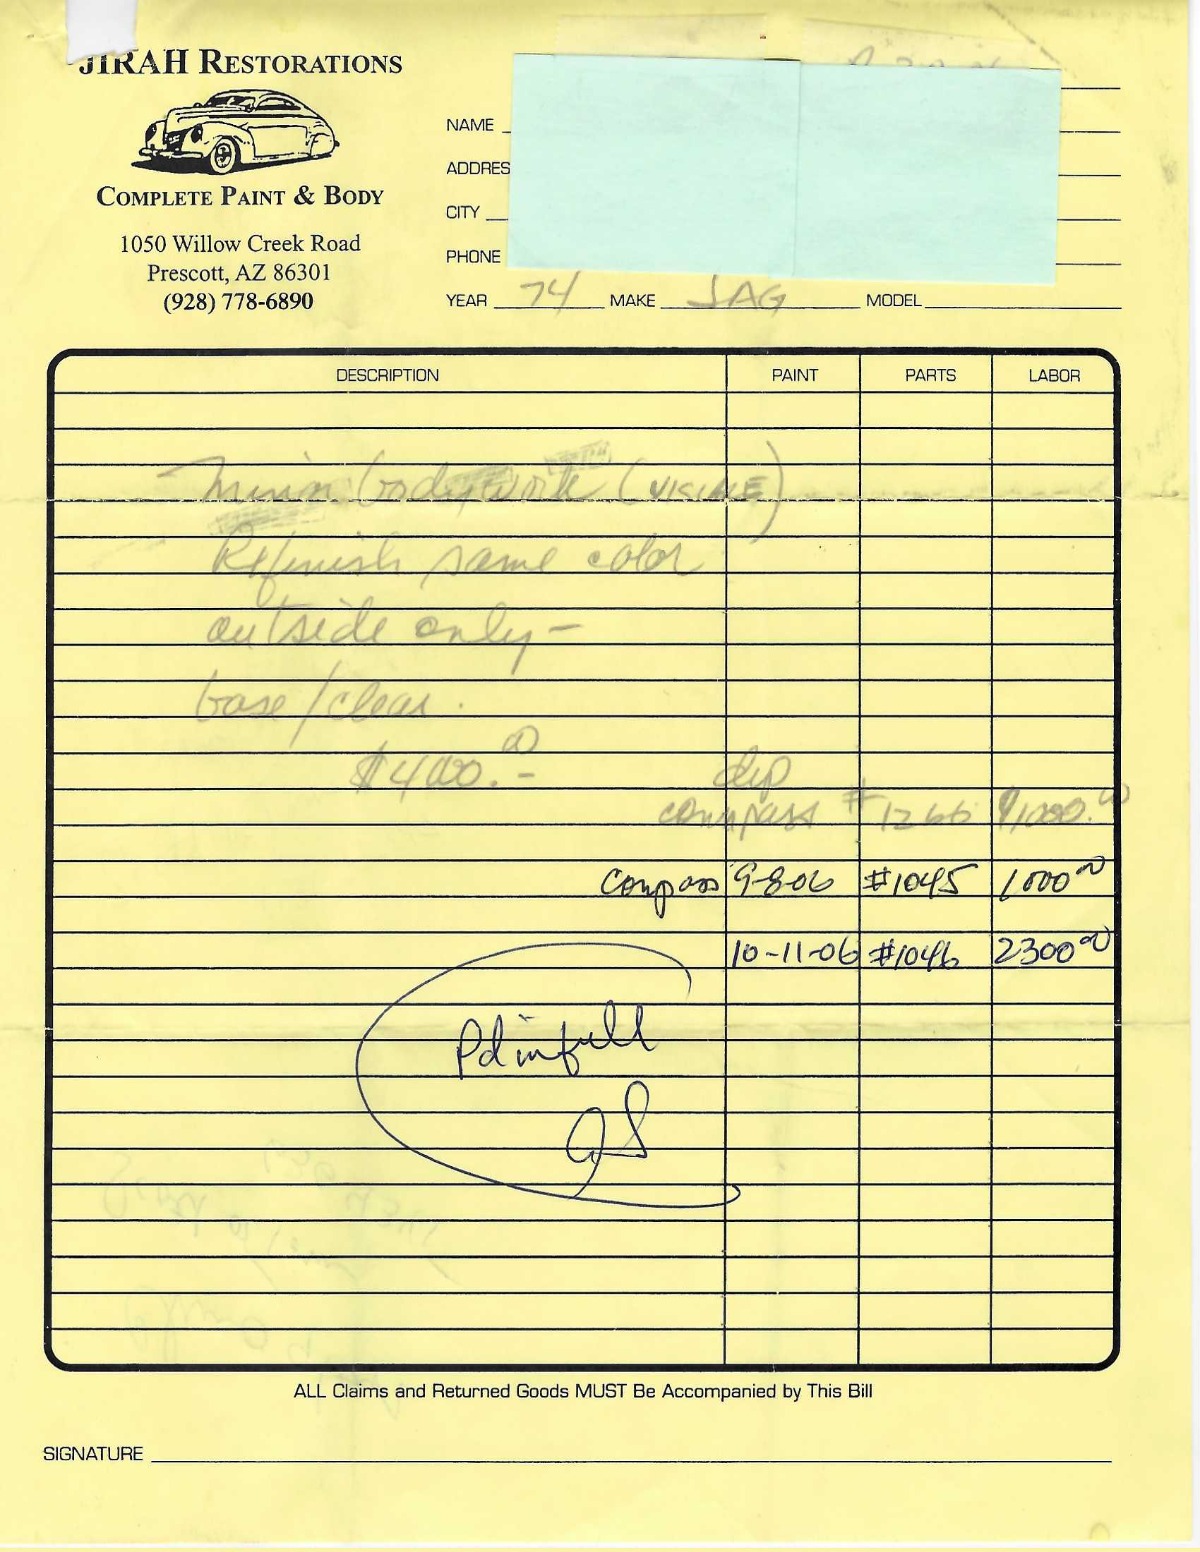 JIRAH RESTORATIONS
COMPLETE PAINT & BODY
1050 Willow Creek Road
Prescott, AZ 86301
(928) 778-6890
NAME
ADDRES
CITY
PHONE
YEAR 74 MAKE JAG MODEL
DESCRIPTION PAINT PARTS LABOR
minor bodywork (VISIBLE)
Refinish same color
outside only -
base/clear.
dep
compass #1266 $1000.00
Compass 9-8-06 #1045 1000 00
10-11-06 #1046 2300 00
Pd in full
ALL Claims and Returned Goods MUST Be Accompanied by This Bill
SIGNATURE